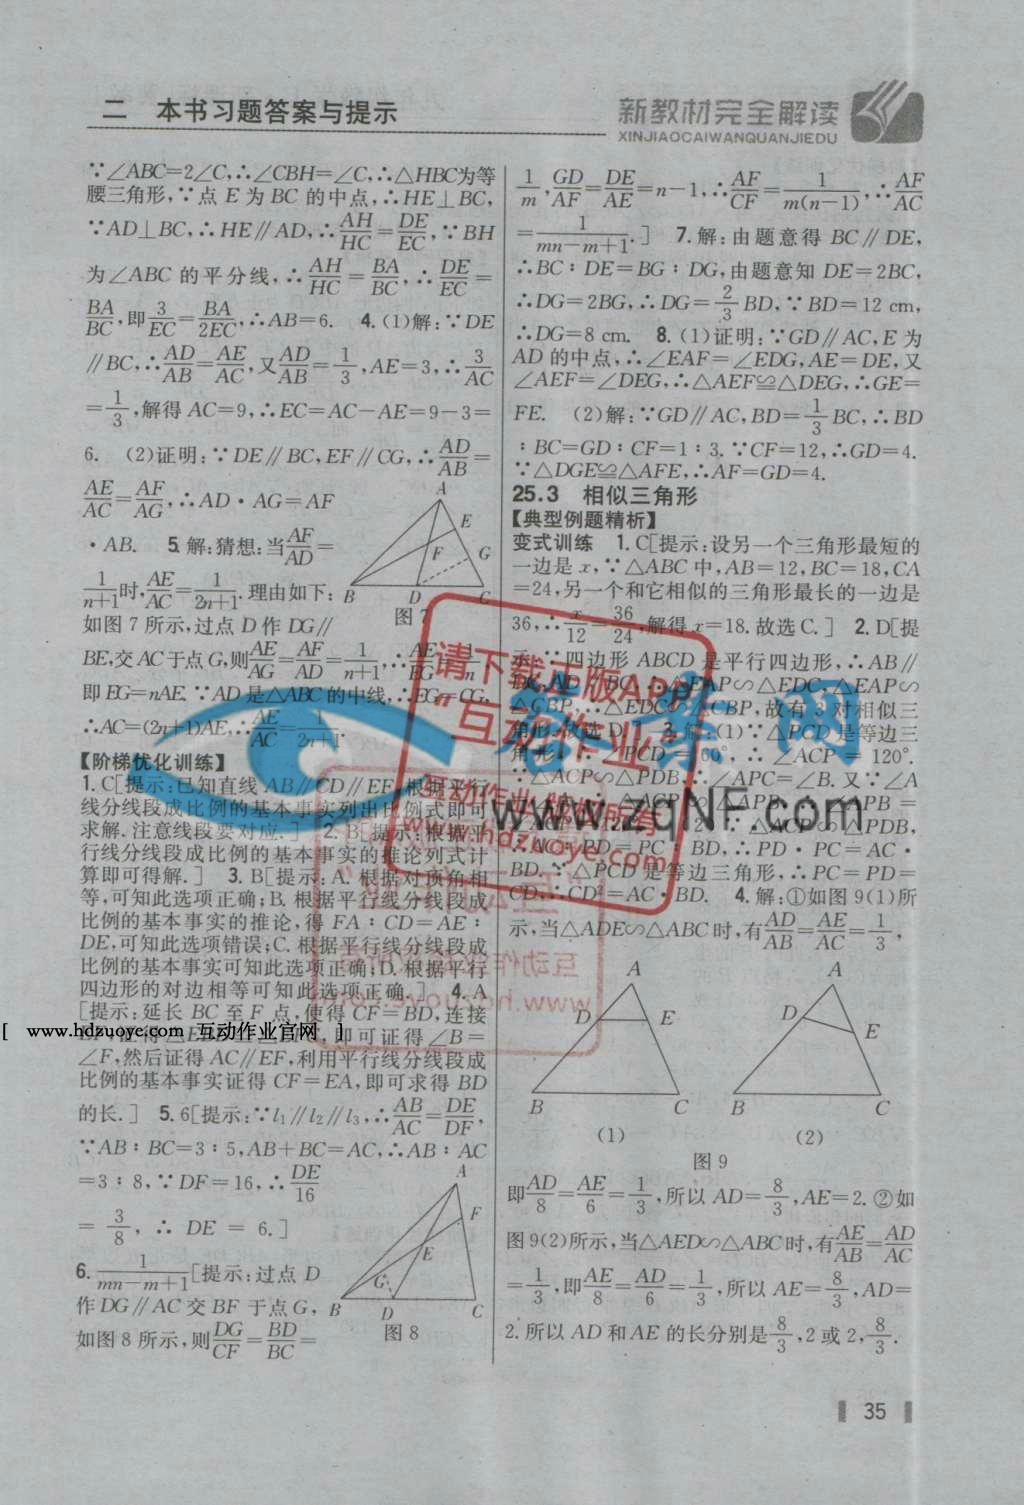 二 本书习题答案与提示
新教材完全解读
XINJIAOCAIWANQUANJIEDU
∵∠ABC=2∠C,∴∠CBH=∠C,∴△HBC为等
腰三角形,∵点 E 为 BC 的中点,∴HE⊥BC,
∵AD⊥BC,∴HE∥AD,∴AH/HC=DE/EC,∵BH
为∠ABC 的平分线,∴AH/HC=BA/BC,∴DE/EC=
BA/BC,即3/EC=BA/2EC,∴AB=6. 4.(1)解:∵DE
∥BC,∴AD/AB=AE/AC,又AD/AB=1/3,AE=3,∴3/AC
=1/3,解得 AC=9,∴EC=AC-AE=9-3=
6. (2)证明:∵DE∥BC,EF∥CG,∴AD/AB=
AE/AC=AF/AG,∴AD·AG=AF
·AB. 5.解:猜想:当AF/AD=
1/(n+1)时,AE/AC=1/(2n+1).理由如下:
如图 7 所示,过点 D 作 DG∥
BE,交 AC 于点 G,则AE/AG=AF/AD=1/(n+1),∴AE/EG=1/n
即 EG=nAE.∵AD 是△ABC 的中线,∴EG=CG,
∴AC=(2n+1)AE,∴AE/AC=1/(2n+1).
A
E
F
G
B
D
C
图 7
【阶梯优化训练】
1.C[提示:已知直线 AB∥CD∥EF,根据平行
线分线段成比例的基本事实列出比例式即可
求解.注意线段要对应.] 2.B[提示:根据平
行线分线段成比例的基本事实的推论列式计
算即可得解.] 3.B[提示:A.根据对顶角相
等,可知此选项正确;B.根据平行线分线段成
比例的基本事实的推论,得 FA∶CD=AE∶
DE,可知此选项错误;C.根据平行线分线段成
比例的基本事实可知此选项正确;D.根据平行
四边形的对边相等可知此选项正确.] 4.A
[提示:延长 BC 至 F 点,使得 CF=BD,连接
[ www.hdzuoye.com 互动作业官网 ]
即可证得∠B=
∠F,然后证得 AC∥EF,利用平行线分线段成
比例的基本事实证得 CF=EA,即可求得 BD
的长.] 5.6[提示:∵l₁∥l₂∥l₃,∴AB/AC=DE/DF,
∵AB∶BC=3∶5,AB+BC=AC,∴AB∶AC
=3∶8,∵DF=16,∴DE/16
=3/8,∴ DE = 6.]
6. 1/(mn-m+1)[提示:过点 D
作 DG∥AC 交 BF 于点 G,
如图 8 所示,则DG/CF=BD/BC=
A
F
E
G
B
D
C
图 8
1/m,GD/AF=DE/AE=n-1,∴AF/CF=1/(m(n-1)),∴AF/AC
=1/(mn-m+1).] 7.解:由题意得 BC∥DE,
∴BC∶DE=BG∶DG,由题意知 DE=2BC,
∴DG=2BG,∴DG=2/3 BD,∵BD=12 cm,
∴DG=8 cm. 8.(1)证明:∵GD∥AC,E 为
AD 的中点,∴∠EAF=∠EDG,AE=DE,又
∠AEF=∠DEG,∴△AEF≌△DEG,∴GE=
FE. (2)解:∵GD∥AC,BD=1/3 BC,∴BD
∶BC=GD∶CF=1∶3.∵CF=12,∴GD=4.
∵△DGE≌△AFE,∴AF=GD=4.
25.3 相似三角形
【典型例题精析】
变式训练 1.C[提示:设另一个三角形最短的
一边是 x,∵△ABC 中,AB=12,BC=18,CA
=24,另一个和它相似的三角形最长的一边是
36,∴x/12=36/24,解得 x=18.故选 C.] 2.D[提
示:∵四边形 ABCD 是平行四边形,∴AB∥
DC,AD∥BC,∴△EAP∽△EDC,△EAP∽
△CBP,∴△EDC∽△CBP,故有 3 对相似三
角形.故选 D.] 3.解:(1)∵△PCD 是等边三
角形,∴∠PCD=60°,∴∠ACP = 120°.
∵△ACP∽△PDB,∴∠APC=∠B.又∵∠A
△PDB,
∴AC∶PD=PC∶BD,∴PD·PC=AC·
BD.∵△PCD 是等边三角形,∴PC=PD=
CD,∴CD²=AC·BD. 4.解:①如图 9(1)所
示,当△ADE∽△ABC 时,有AD/AB=AE/AC=1/3,
A
D
E
B
C
(1)
A
D
E
B
C
(2)
图 9
即AD/8=AE/6=1/3,所以 AD=8/3,AE=2.②如
图 9(2)所示,当△AED∽△ABC 时,有AE/AB=AD/AC
=1/3,即AE/8=AD/6=1/3,所以 AE=8/3,AD=
2.所以 AD 和 AE 的长分别是8/3,2或 2,8/3.
请下载正版APP
“互动作业”
互动作业 版权所有
www.hdzuoye.com
www.zqNF.com
35